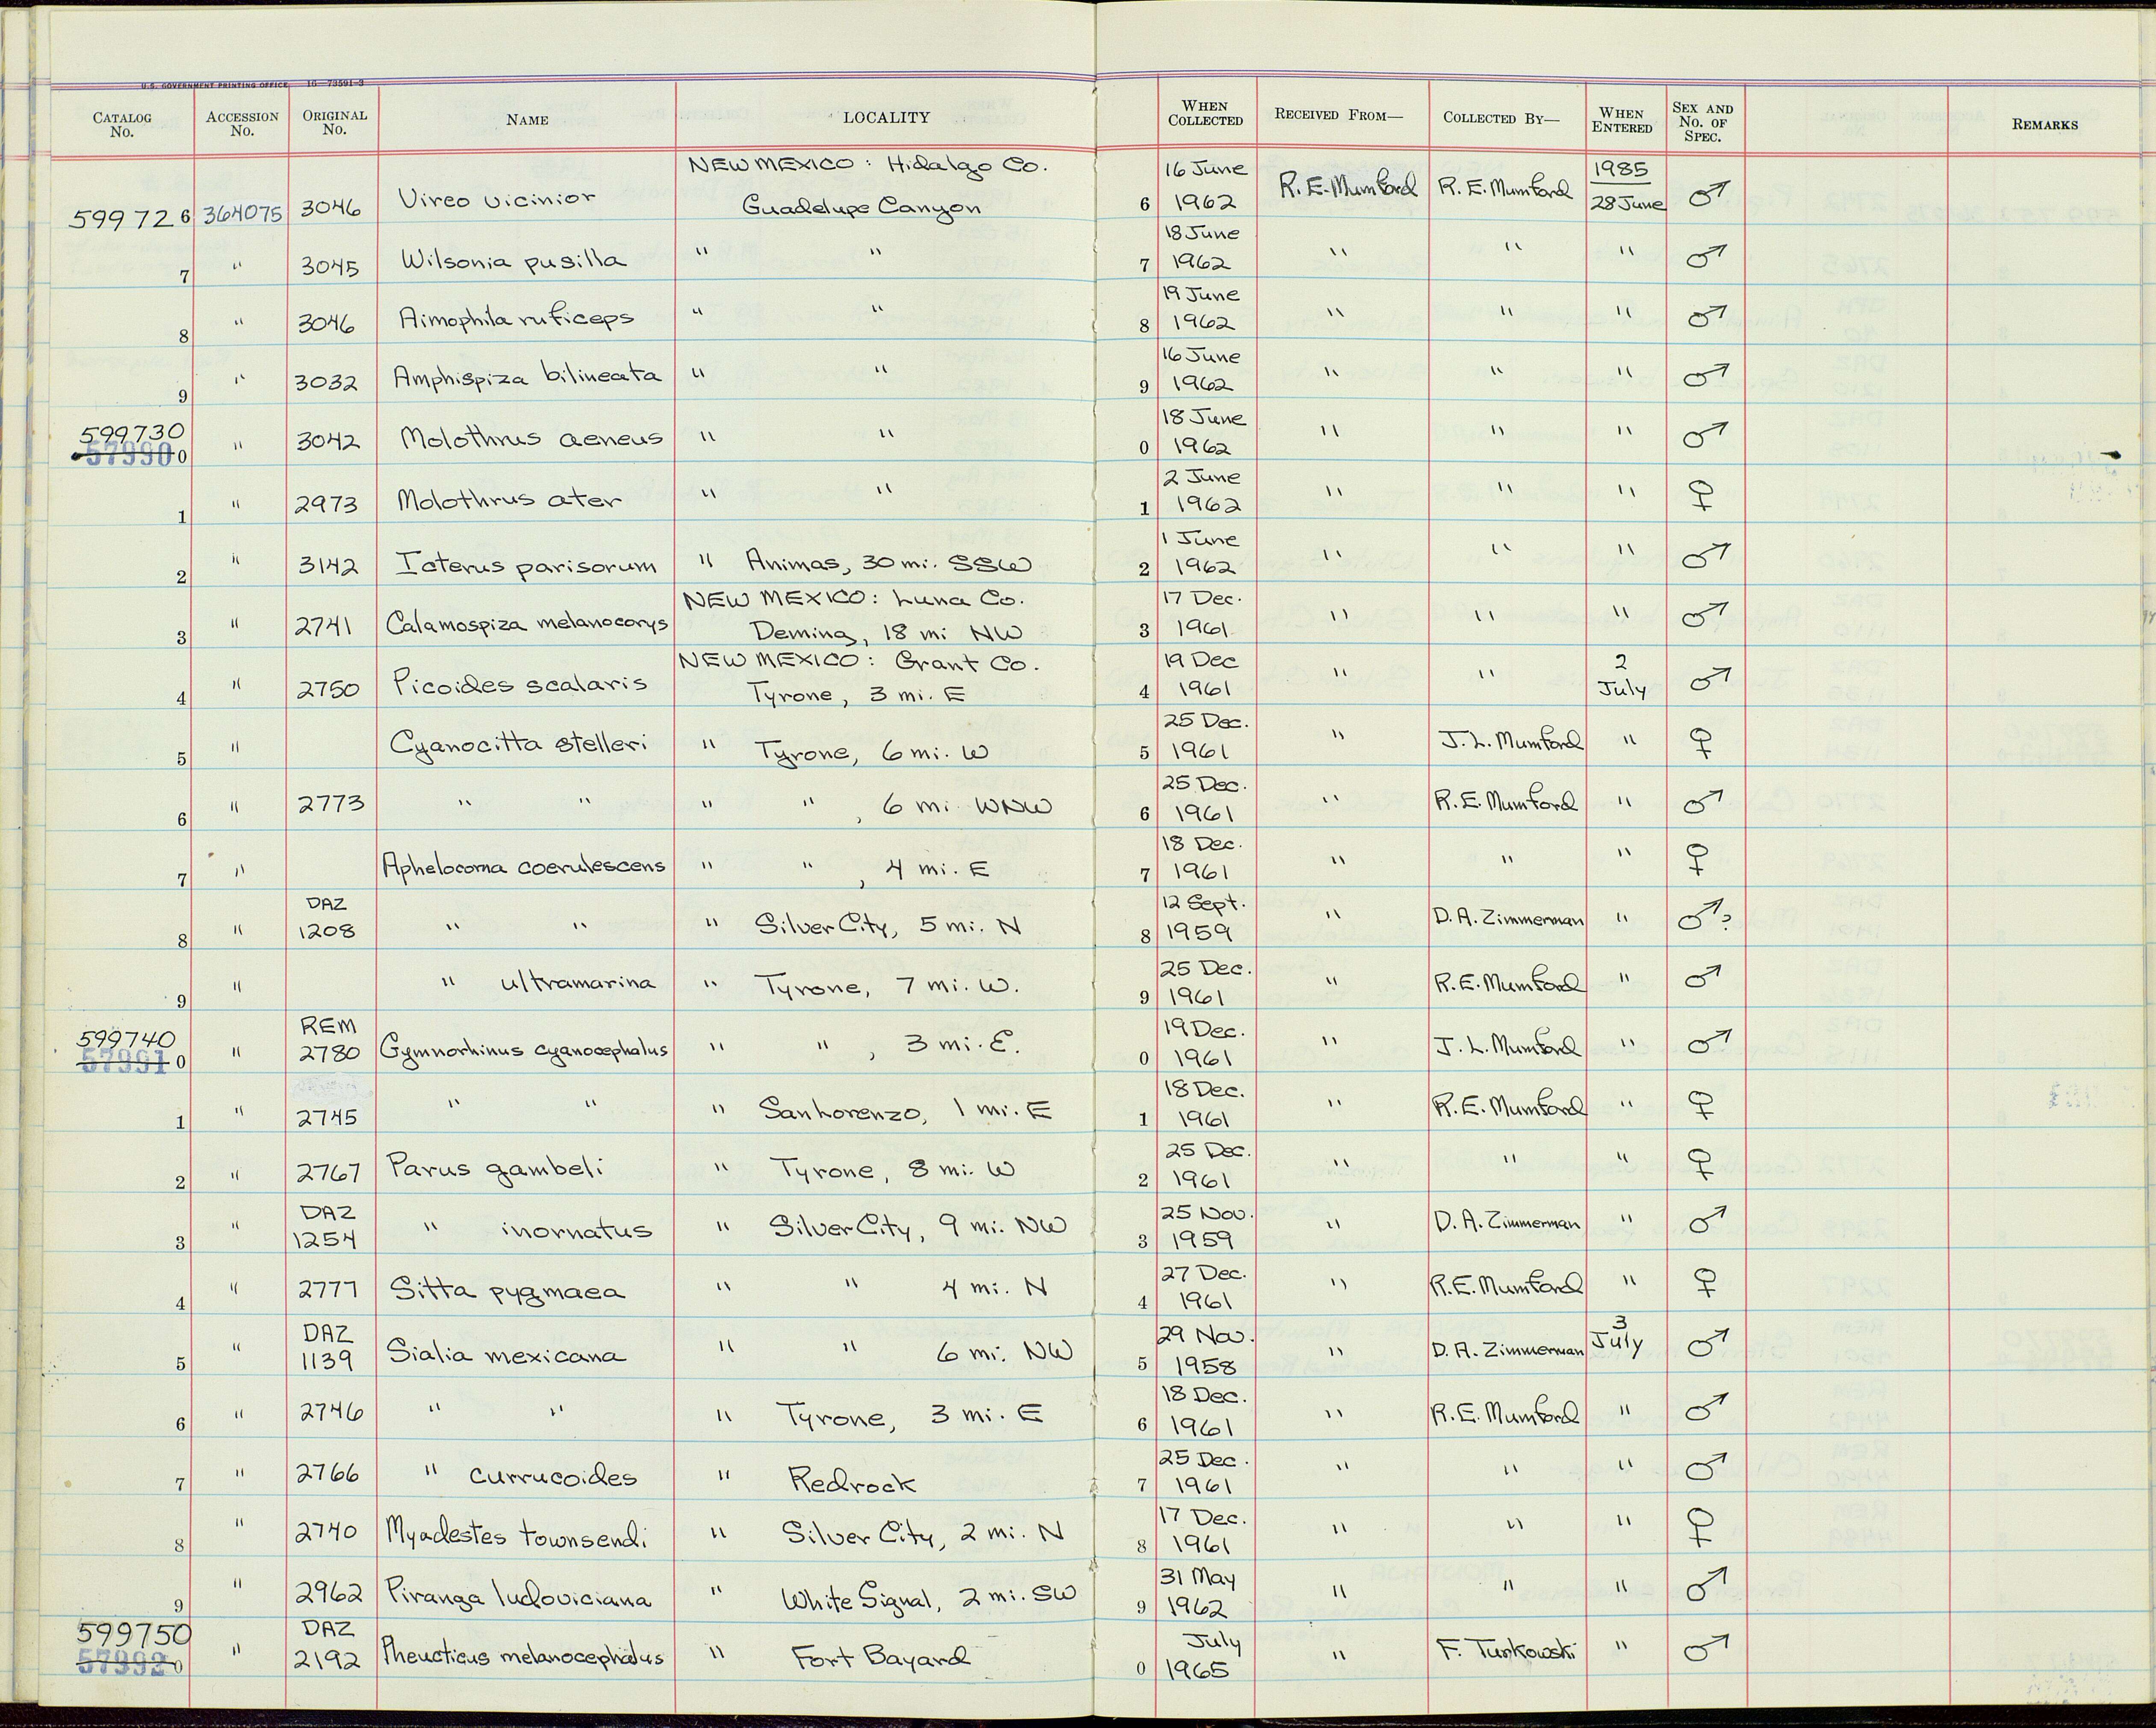 U.S. GOVERNMENT PRINTING OFFICE 16—73591-3
CATALOG No. ACCESSION No. ORIGINAL No. NAME LOCALITY WHEN COLLECTED RECEIVED FROM— COLLECTED BY— WHEN ENTERED SEX AND No. OF SPEC. REMARKS
NEW MEXICO: Hidalgo Co. 16 June 1985
599726 364075 3046 Vireo vicinior Guadelupe Canyon 6 1962 R.E. Mumford R.E. Mumford 28 June ♂
18 June
7 " 3045 Wilsonia pusilla " " 7 1962 " " " ♂
19 June
8 " 3046 Aimophila ruficeps " " 8 1962 " " " ♂
16 June
9 " 3032 Amphispiza bilineata " " 9 1962 " " " ♂
599730 18 June
579900 " 3042 Molothrus aeneus " " 0 1962 " " " ♂
2 June
1 " 2973 Molothrus ater " " 1 1962 " " " ♀
1 June
2 " 3142 Icterus parisorum " Animas, 30 mi. SSW 2 1962 " " " ♂
NEW MEXICO: Luna Co. 17 Dec.
3 " 2741 Calamospiza melanocorys Deming, 18 mi NW 3 1961 " " " ♂
NEW MEXICO: Grant Co. 19 Dec 2
4 " 2750 Picoides scalaris Tyrone, 3 mi. E 4 1961 " " July ♂
25 Dec.
5 " Cyanocitta stelleri " Tyrone, 6 mi. W 5 1961 " J.L. Mumford " ♀
25 Dec.
6 " 2773 " " " " , 6 mi WNW 6 1961 " R.E. Mumford " ♂
18 Dec.
7 " Aphelocoma coerulescens " " , 4 mi. E 7 1961 " " " ♀
DAZ 12 Sept.
8 " 1208 " " " Silver City, 5 mi. N 8 1959 " D.A. Zimmerman " ♂?
25 Dec.
9 " " ultramarina " Tyrone, 7 mi. W. 9 1961 " R.E. Mumford " ♂
599740 REM 19 Dec.
579910 " 2780 Gymnorhinus cyanocephalus " " , 3 mi. E. 0 1961 " J.L. Mumford " ♂
18 Dec.
1 " 2745 " " " San Lorenzo, 1 mi. E 1 1961 " R.E. Mumford " ♀
25 Dec.
2 " 2767 Parus gambeli " Tyrone, 8 mi. W 2 1961 " " " ♀
DAZ 25 Nov.
3 " 1254 " inornatus " Silver City, 9 mi. NW 3 1959 " D.A. Zimmerman " ♂
27 Dec.
4 " 2777 Sitta pygmaea " " 4 mi. N 4 1961 " R.E. Mumford " ♀
DAZ 29 Nov. 3
5 " 1139 Sialia mexicana " " 6 mi. NW 5 1958 " D.A. Zimmerman July ♂
18 Dec.
6 " 2746 " " " Tyrone, 3 mi. E 6 1961 " R.E. Mumford " ♂
25 Dec.
7 " 2766 " currucoides " Redrock 7 1961 " " " ♂
17 Dec.
8 " 2740 Myadestes townsendi " Silver City, 2 mi. N 8 1961 " " " ♀
31 May
9 " 2962 Piranga ludoviciana " White Signal, 2 mi. SW 9 1962 " " " ♂
599750 DAZ July
579920 " 2192 Pheucticus melanocephalus " Fort Bayard 0 1965 " F. Turkowski " ♂